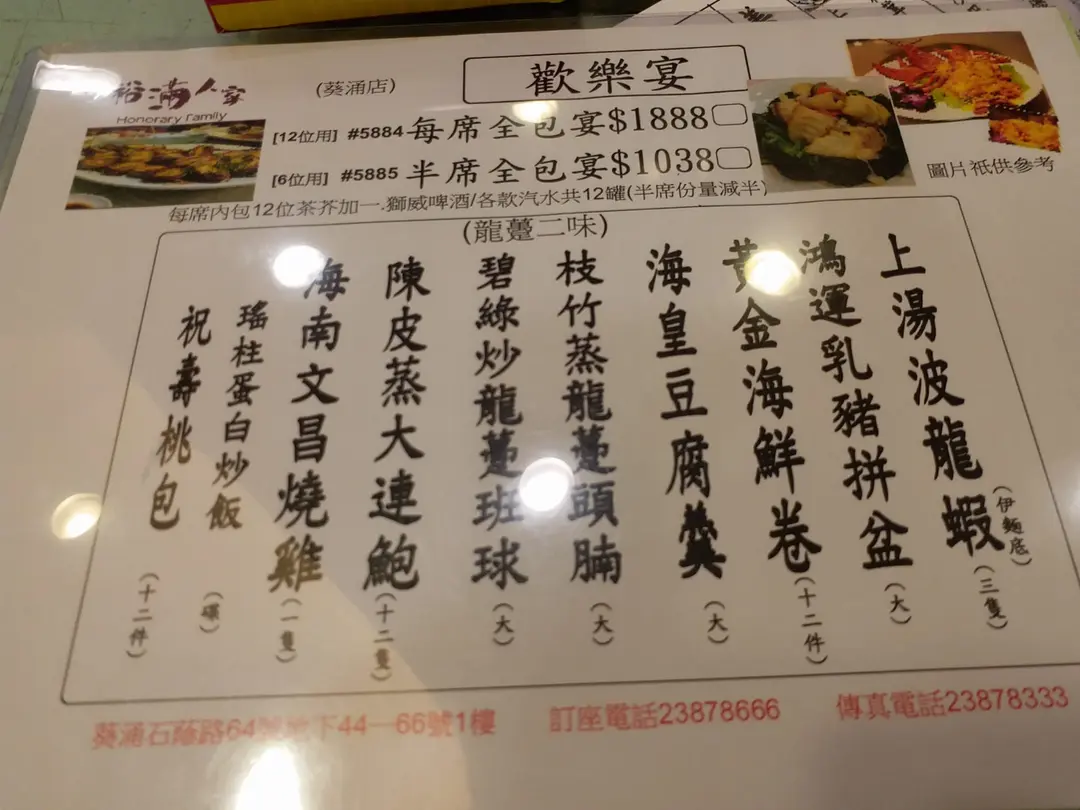 裕滿人家
Honorary Family
(葵涌店)
歡樂宴
[12位用] #5884 每席全包宴$1888
[6位用] #5885 半席全包宴$1038
每席內包12位茶芥加一.獅威啤酒/各款汽水共12罐(半席份量減半)
圖片祇供參考
(龍躉二味)
上湯波龍蝦(伊麵底)(三隻)
鴻運乳豬拼盆(大)
黃金海鮮卷(十二件)
海皇豆腐羹(大)
枝竹蒸龍躉頭腩(大)
碧綠炒龍躉班球(大)
陳皮蒸大連鮑(十二隻)
海南文昌燒雞(一隻)
瑤柱蛋白炒飯(碟)
祝壽桃包(十二件)
葵涌石蔭路64號地下44—66號1樓
訂座電話23878666
傳真電話23878333